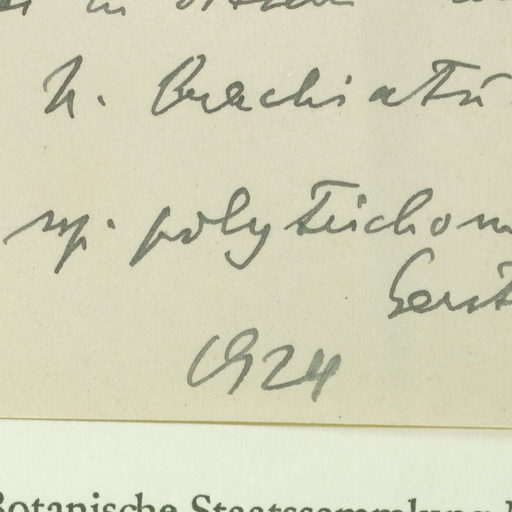 H. Brachiatu
sp. polytrichom
Gerst
1924
Botanische Staatssammlung